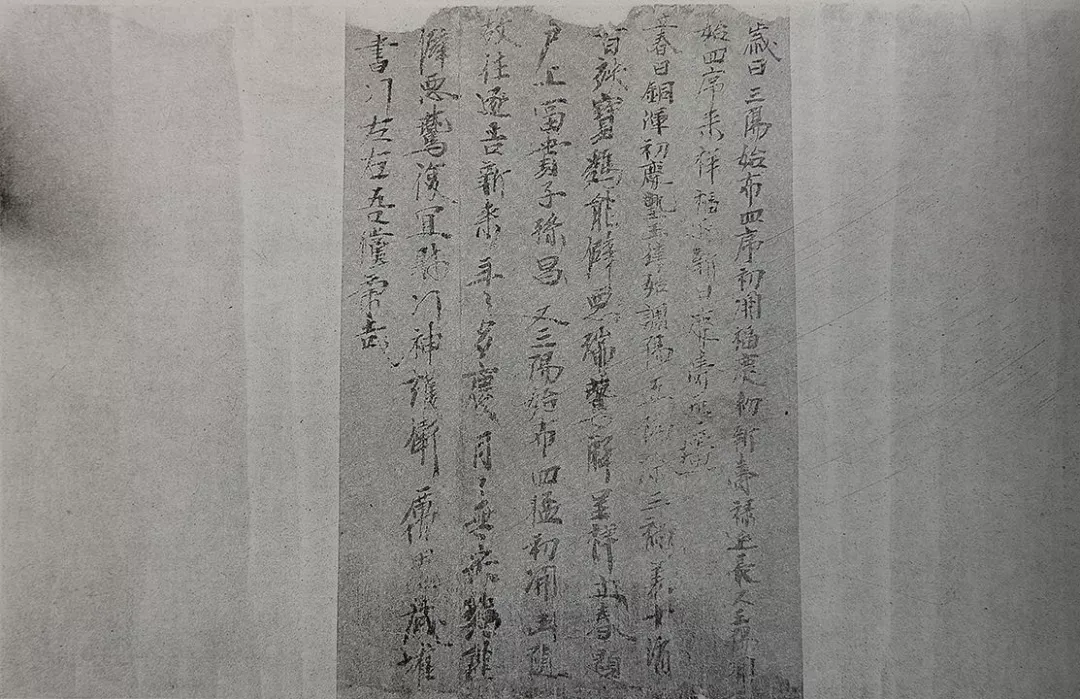 歲日三陽始布四序初開福慶初新壽祿延長又三陽
始四序來祥福延新日慶壽無疆
立春日銅渾初慶墊玉律始調陽五福除三禍万古
百殃寶鷄能僻惡瑞鷰解呈祥立春
戶上富貴子孫昌又三陽始布四猛初開
故往逐吉新來年々多慶月々無灾鷄
僻惡鷰復宜財門神護衛厲鬼藏埋
書門左右吾儻康哉